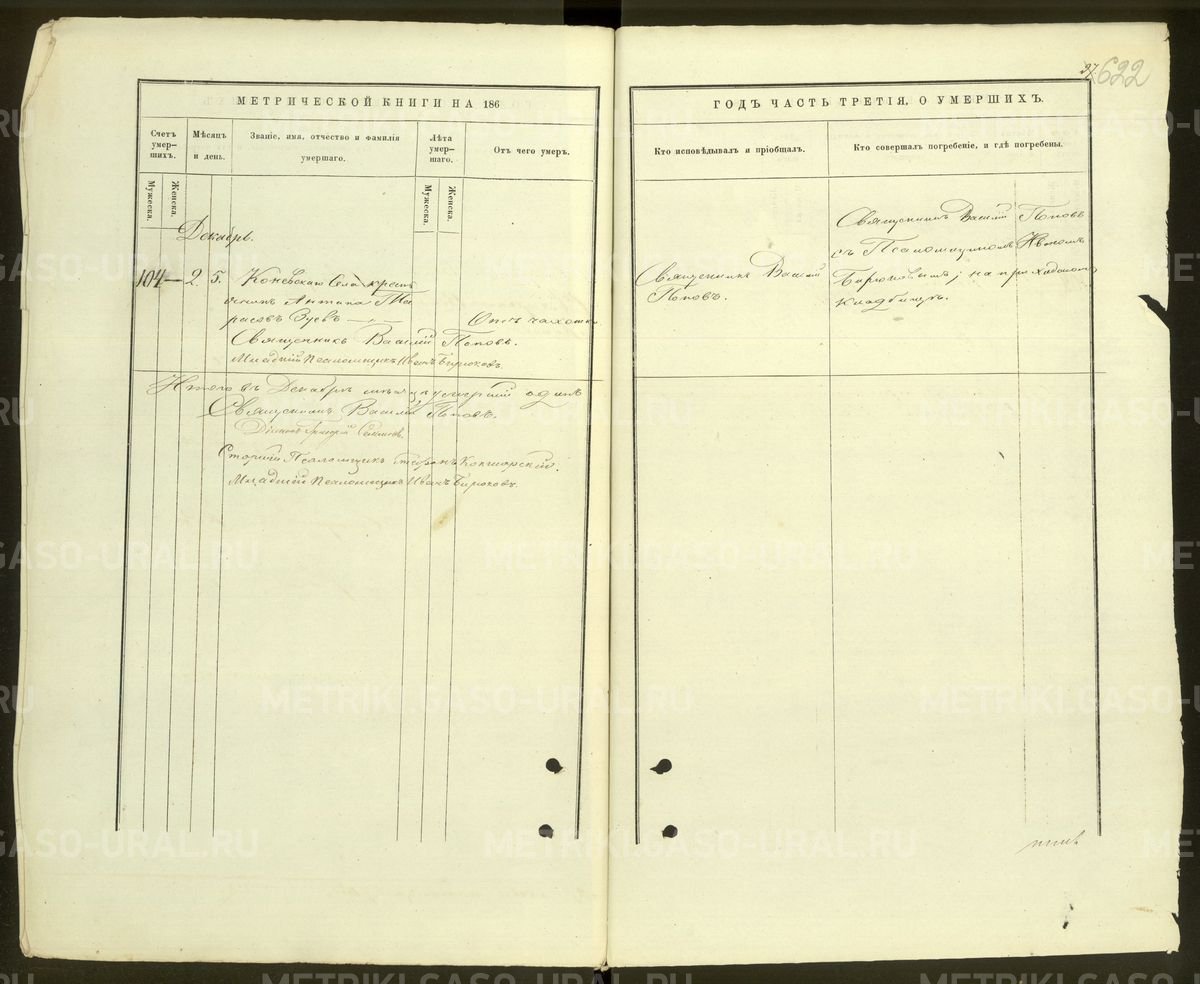 37.
622
МЕТРИЧЕСКОЙ КНИГИ НА 186
Счетъ умер—шихъ.
Мѣсяцъ и день.
Званіе, имя, отчество и фамилія умершаго.
Лѣта умер—шаго.
Отъ чего умеръ.
Мужеска.
Женска.
Мужеска.
Женска.
Декабрь.
104 — 2. 5. Коневскаго Села крестъ
янинъ Антипа
Зуевъ — „ — Отъ чахотки
Священникъ Василій Поповъ.
Младшій Псаломщикъ Иванъ Бирюковъ.
Итого въ Декабрѣ мѣсяцѣ умершій одинъ
Священникъ Василій Поповъ.
Діаконъ Григорій
Старшій Псаломщикъ
Младшій Псаломщикъ Иванъ Бирюковъ.
ГОДЪ ЧАСТЬ ТРЕТІЯ, О УМЕРШИХЪ.
Кто исповѣдывалъ и пріобщалъ.
Кто совершалъ погребеніе, и гдѣ погребены.
Священникъ Василій
Поповъ.
Священникъ Василій Поповъ
съ Псаломщикомъ Иваномъ
Бирюковымъ; на приходскомъ
кладбищѣ.
METRIKI.GASO-URAL.RU